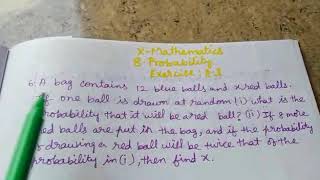 X-Mathematics
8-Probability
Exercise: 8.1
6. A bag contains 12 blue balls and x red balls.
If one ball is drawn at random (i) what is the
probability that it will be a red ball? (ii) If 8 more
red balls are put in the bag, and if the probability
of drawing a red ball will be twice that of the
probability in (i), then find x.